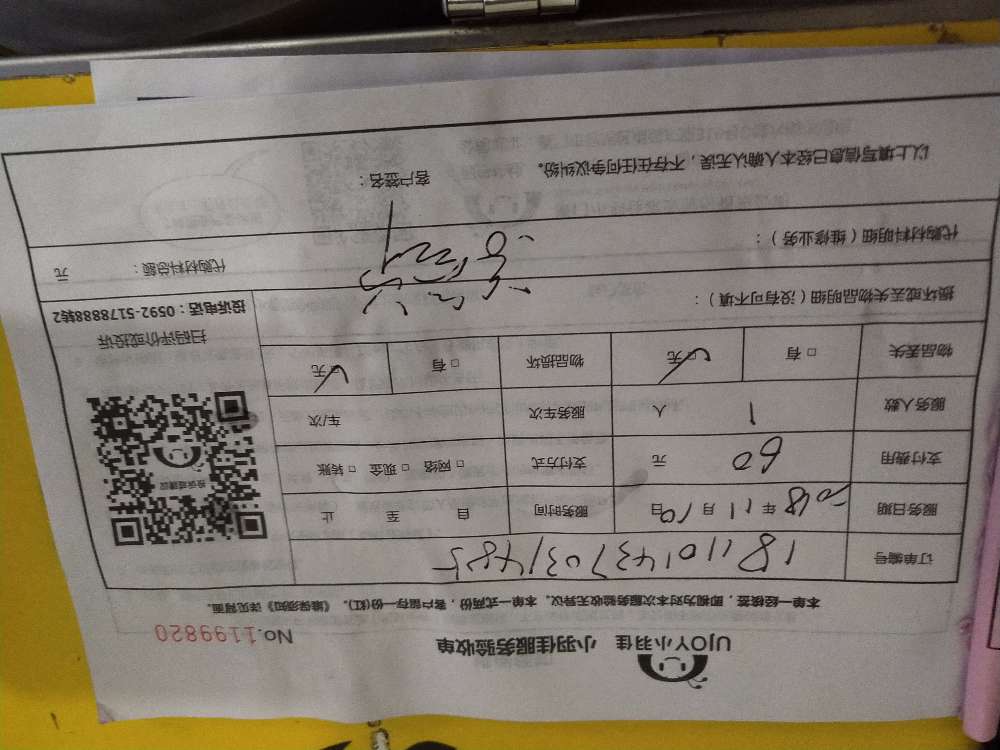 UJOY小羽佳 小羽佳服务验收单
No.1199820
本单一经核签，即视为对本次服务验收无异议。本单一式两份，客户留存一份(红)。《维保须知》详见背面。
订单编号 181101437031485
服务日期 2018年11月19日 服务时间 自 至 止
支付费用 60 元 支付方式 □ 网络 □ 现金 □ 转账
服务人数 1 人 服务车次 车/次
物品丢失 □ 有 ☑无 物品损坏 □ 有 ☑无
投诉或建议
扫码评价或投诉
投诉电话：0592-5178888转2
损坏或丢失物品明细（没有可不填）：
代购材料明细（维修业务）：
代购材料总额： 元
以上填写信息已经本人确认无误，不存在任何争议纠纷。
客户签名：